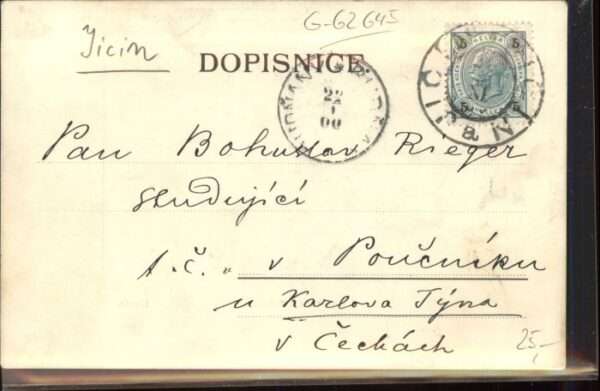 G-62645
Jicin
DOPISNICE
22
1
00
Pan Bohuslav Rieger
studující
t. č. v Poučníku
u Karlova Týna
v Čechách
25,-